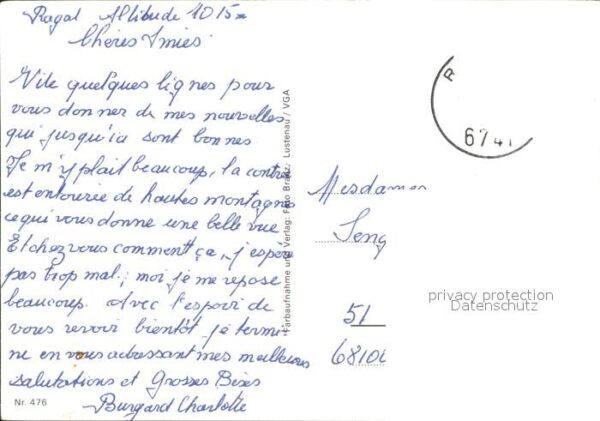 Ragal Altitude 1015m
Chères Amies
Vite quelques lignes pour
vous donner de mes nouvelles
qui jusqu'ici sont bonnes.
Je m'y plait beaucoup, la contrée
est entourée de hautes montagnes
ce qui vous donne une belle vue
Et chez vous comment ça, j'espère
pas trop mal; moi je me repose
beaucoup. Avec l'espoir de
vous revoir bientôt je termi-
ne en vous adressant mes meilleures
salutations et Grosses Bises
Burgard Charlotte
Nr. 476
Farbaufnahme und Verlag: Foto Branz, Lustenau / VGA
R
6741
Mesdames
Seng
51
6810
privacy protection
Datenschutz